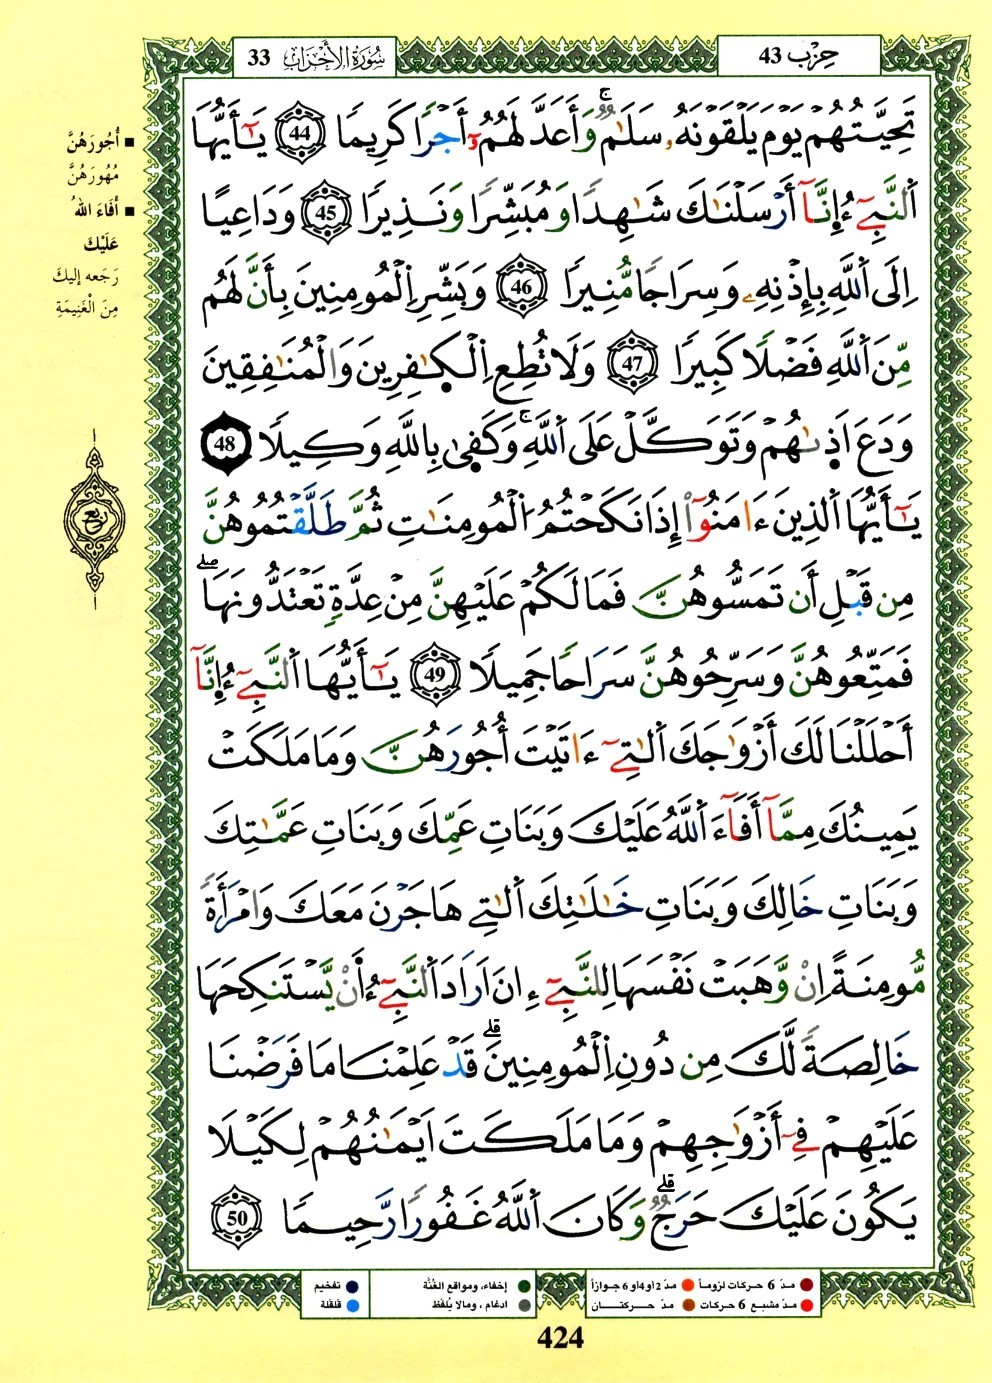 حِزْب 43
سُورَةُ الأَحْزَاب 33
تَحِيَّتُهُمْ يَوْمَ يَلْقَوْنَهُۥ سَلَٰمٌۚ وَأَعَدَّ لَهُمُۥٓ أَجْرًا كَرِيمًا 44 يَٰٓأَيُّهَا
اَ۬لنَّبِےٓءُ اِنَّآ أَرْسَلْنَٰكَ شَٰهِدًا وَمُبَشِّرًا وَنَذِيرًا 45 وَدَاعِيًا
اِلَى اَ۬للَّهِ بِإِذْنِهِۦ وَسِرَاجًا مُّنِيرًا 46 وَبَشِّرِ اِ۬لْمُومِنِينَ بِأَنَّ لَهُم
مِّنَ اَ۬للَّهِ فَضْلًا كَبِيرًا 47 وَلَا تُطِعِ اِ۬لْكَٰفِرِينَ وَالْمُنَٰفِقِينَ
وَدَعَ اَذ۪ىٰهُمْ وَتَوَكَّلْ عَلَى اَ۬للَّهِۚ وَكَف۪ىٰ بِاللَّهِ وَكِيلًا 48
يَٰٓأَيُّهَا اَ۬لذِينَ ءَامَنُوٓاْ إِذَا نَكَحْتُمُ اُ۬لْمُومِنَٰتِ ثُمَّ طَلَّقْتُمُوهُنَّ
مِن قَبْلِ أَن تَمَسُّوهُنَّ فَمَا لَكُمْ عَلَيْهِنَّ مِنْ عِدَّةٍ تَعْتَدُّونَهَاۖ
فَمَتِّعُوهُنَّ وَسَرِّحُوهُنَّ سَرَاحًا جَمِيلًا 49 يَٰٓأَيُّهَا اَ۬لنَّبِےٓءُ اِنَّآ
أَحْلَلْنَا لَكَ أَزْوَٰجَكَ اَ۬لٰتِےٓ ءَاتَيْتَ أُجُورَهُنَّ وَمَا مَلَكَتْ
يَمِينُكَ مِمَّآ أَفَآءَ اَ۬للَّهُ عَلَيْكَ وَبَنَاتِ عَمِّكَ وَبَنَاتِ عَمَّٰتِكَ
وَبَنَاتِ خَالِكَ وَبَنَاتِ خَٰلَٰتِكَ اَ۬لٰتِے هَاجَرْنَ مَعَكَ وَامْرَأَةً
مُّومِنَةً اِنْ وَّهَبَتْ نَفْسَهَا لِلنَّبِےٓءِ اِنَ اَرَادَ اَ۬لنَّبِےٓءُ اَنْ يَّسْتَنكِحَهَا
خَالِصَةً لَّكَ مِن دُونِ اِ۬لْمُومِنِينَۗ قَدْ عَلِمْنَا مَا فَرَضْنَا
عَلَيْهِمْ فِےٓ أَزْوَٰجِهِمْ وَمَا مَلَكَتَ اَيْمَٰنُهُمْ لِكَيْلَا
يَكُونَ عَلَيْكَ حَرَجٌۗ وَكَانَ اَ۬للَّهُ غَفُورًا رَّحِيمًا 50
■ أُجُورَهُنَّ
مُهُورَهُنَّ
■ أَفَاءَ اللهُ
عَلَيْكَ
رَجَعه إليكَ
مِنَ الْغَنِيمَةِ
ربع
مدّ 6 حركات لزوماً مدّ 2 أو 4 أو 6 جوازاً
مدّ مشبع 6 حركات مدّ حركتان
إخفاء، ومواقع الغُنَّة
ادغام، ومالا يُلفَظ
تفخيم
قلقلة
424